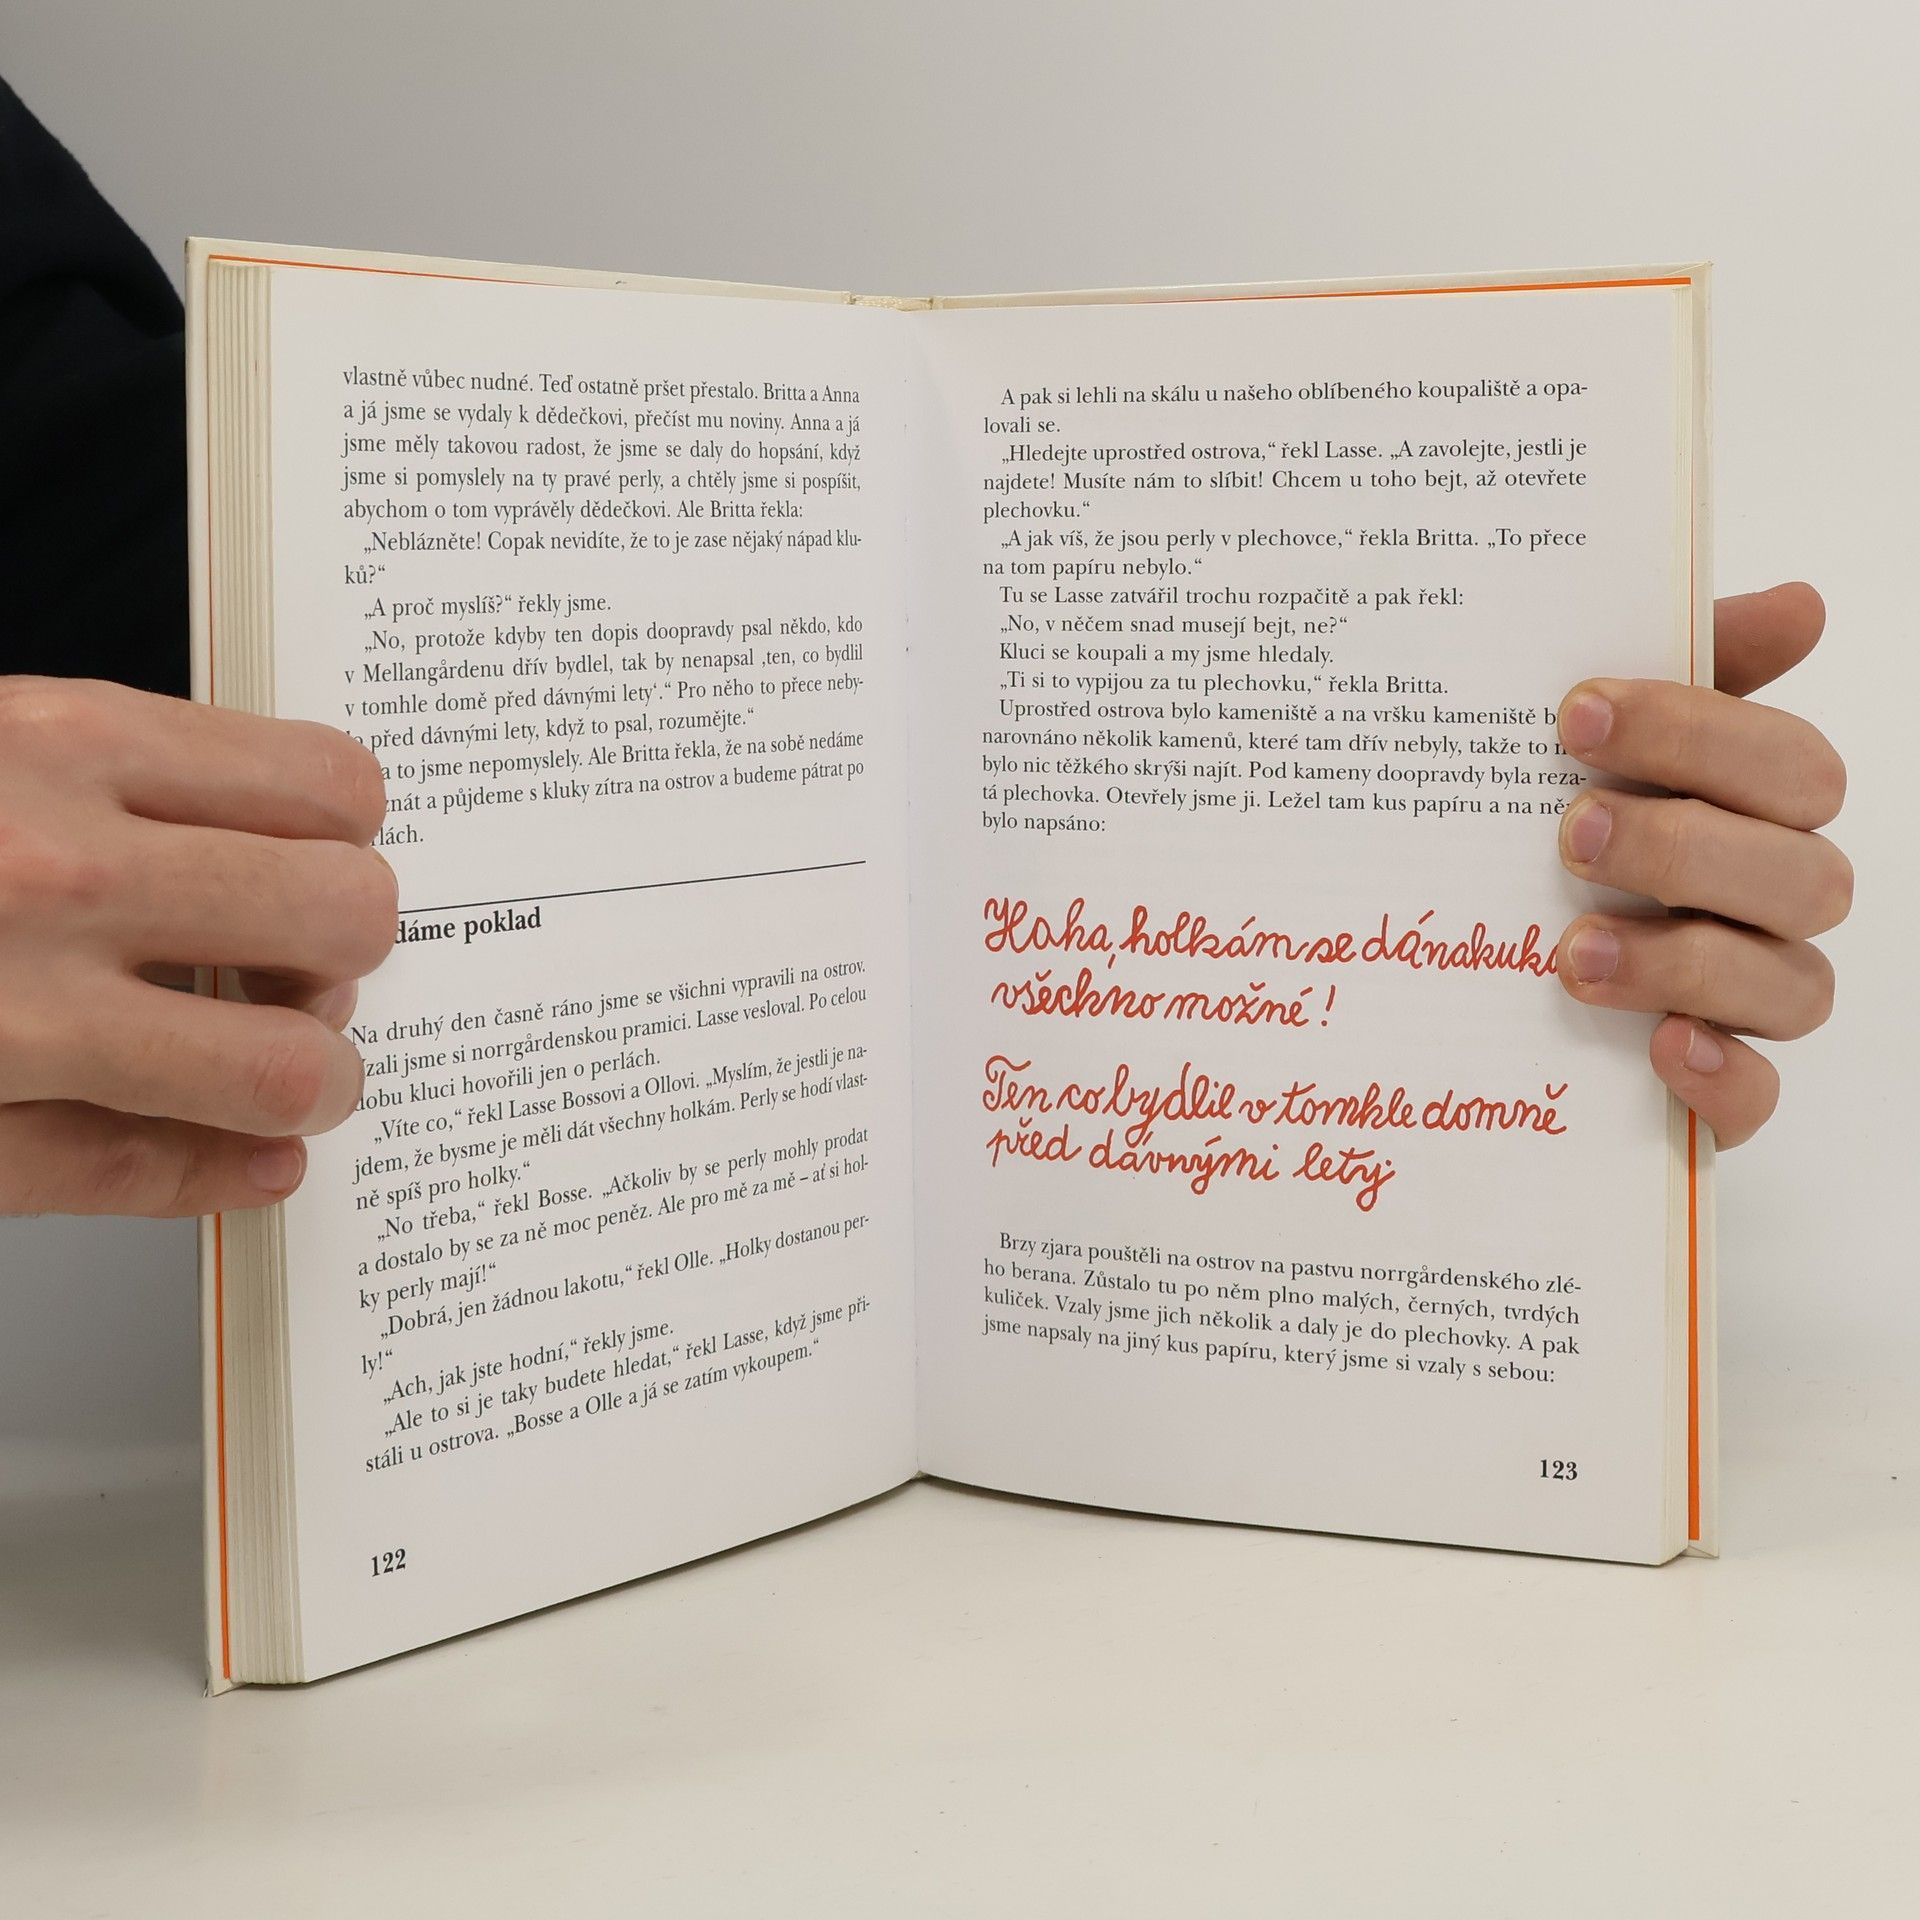 vlastně vůbec nudné. Teď ostatně pršet přestalo. Britta a Anna
a já jsme se vydaly k dědečkovi, přečíst mu noviny. Anna a já
jsme měly takovou radost, že jsme se daly do hopsání, když
jsme si pomyslely na ty pravé perly, a chtěly jsme si pospíšit,
abychom o tom vyprávěly dědečkovi. Ale Britta řekla:
„Neblázněte! Copak nevidíte, že to je zase nějaký nápad klu-
ků?“
„A proč myslíš?“ řekly jsme.
„No, protože kdyby ten dopis doopravdy psal někdo, kdo
v Mellangårdenu dřív bydlel, tak by nenapsal ‚ten, co bydlil
v tomhle domě před dávnými lety‘.“ Pro něho to přece neby-
před dávnými lety, když to psal, rozumějte.“
a to jsme nepomyslely. Ale Britta řekla, že na sobě nedáme
a půjdeme s kluky zítra na ostrov a budeme pátrat po
poklad
Na druhý den časně ráno jsme se všichni vypravili na ostrov.
Vzali jsme si norrgårdenskou pramici. Lasse vesloval. Po celou
dobu kluci hovořili jen o perlách.
„Víte co,“ řekl Lasse Bossovi a Ollovi. „Myslím, že jestli je na-
jdem, že bysme je měli dát všechny holkám. Perly se hodí vlast-
ně spíš pro holky.“
„No třeba,“ řekl Bosse. „Ačkoliv by se perly mohly prodat
a dostalo by se za ně moc peněz. Ale pro mě za mě – ať si hol-
ky perly mají!“
„Dobrá, jen žádnou lakotu,“ řekl Olle. „Holky dostanou per-
ly!“
„Ach, jak jste hodní,“ řekly jsme.
„Ale to si je taky budete hledat,“ řekl Lasse, když jsme při-
stáli u ostrova. „Bosse a Olle a já se zatím vykoupem.“
122
A pak si lehli na skálu u našeho oblíbeného koupaliště a opa-
lovali se.
„Hledejte uprostřed ostrova,“ řekl Lasse. „A zavolejte, jestli je
najdete! Musíte nám to slíbit! Chcem u toho bejt, až otevřete
plechovku.“
„A jak víš, že jsou perly v plechovce,“ řekla Britta. „To přece
na tom papíru nebylo.“
Tu se Lasse zatvářil trochu rozpačitě a pak řekl:
„No, v něčem snad musejí bejt, ne?“
Kluci se koupali a my jsme hledaly.
„Ti si to vypijou za tu plechovku,“ řekla Britta.
Uprostřed ostrova bylo kameniště a na vršku kameniště
narovnáno několik kamenů, které tam dřív nebyly, takže to
bylo nic těžkého skrýši najít. Pod kameny doopravdy byla reza-
tá plechovka. Otevřely jsme ji. Ležel tam kus papíru a na
bylo napsáno:
Haha, holkám se dá nakukat
všechno možné!
Ten co bydlil v tomhle domně
před dávnými lety.
Brzy zjara pouštěli na ostrov na pastvu norrgårdenského zlé-
ho berana. Zůstalo tu po něm plno malých, černých, tvrdých
kuliček. Vzaly jsme jich několik a daly je do plechovky. A pak
jsme napsaly na jiný kus papíru, který jsme si vzaly s sebou:
123